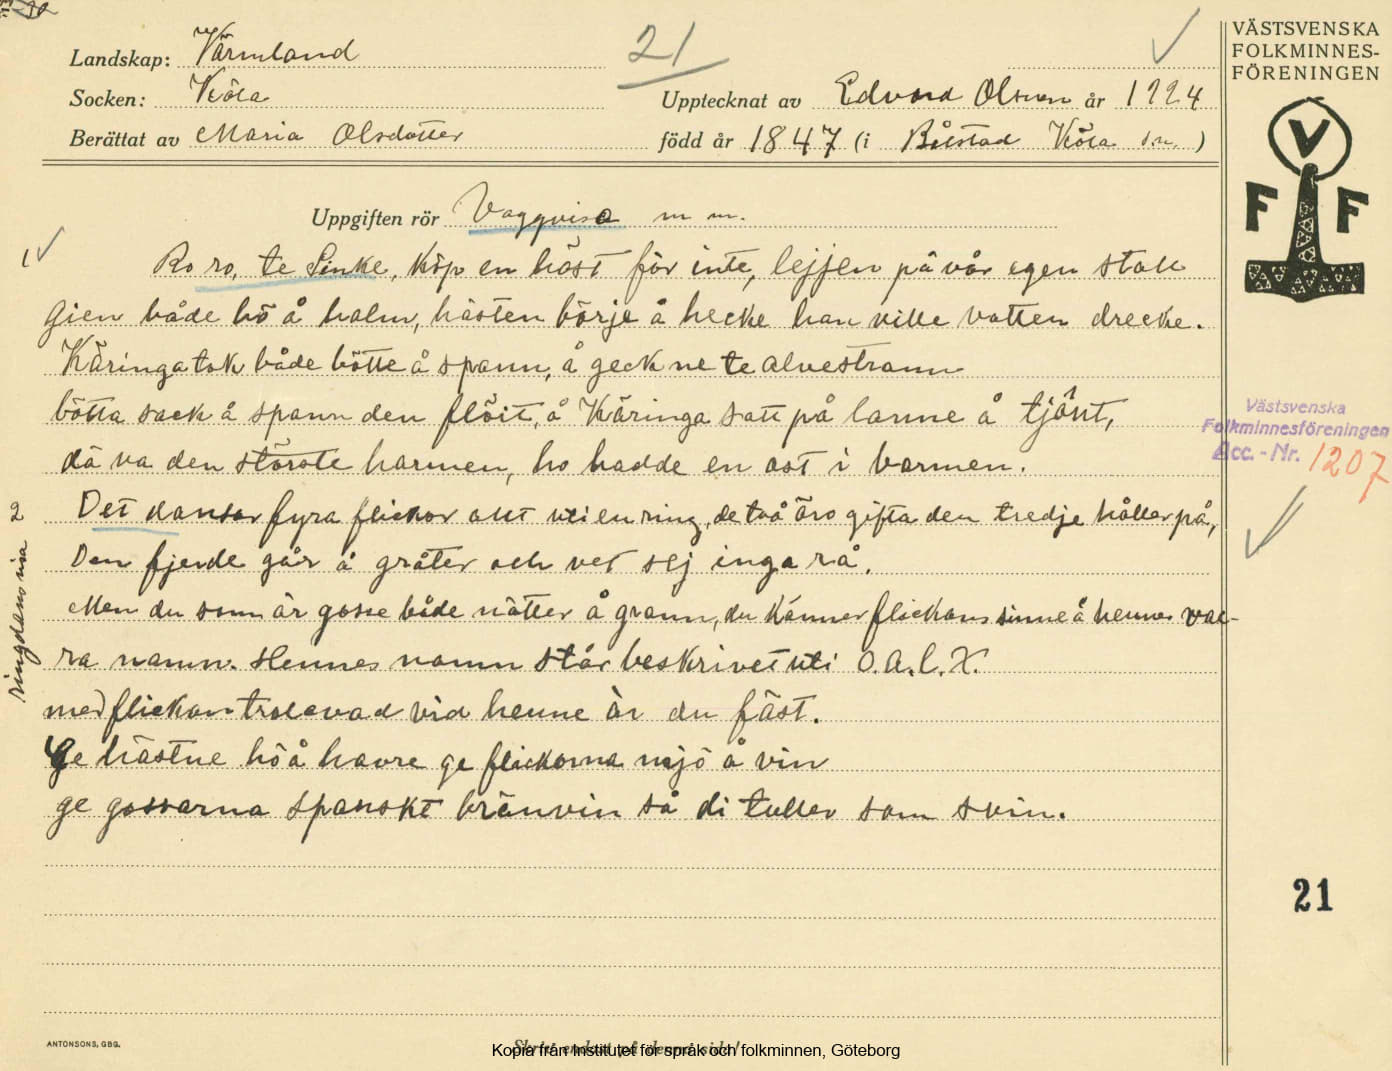 VÄSTSVENSKA
FOLKMINNES-
FÖRENINGEN
Landskap: Värmland
21
Socken: Köla
Upptecknat av Edvard Olsson år 1924
Berättat av Maria Olsdotter
född år 1847 (i Bôlstad Köla sn. )
Uppgiften rör Vaggvisa m m.
V
F F
1
Ro ro, te Linke, köp en häst för inte, lejjen på vår egen stall
gien både hö å halm, hästen börje å hecke han ville vatten drecke.
Käringa tok både bötte å spann, å geck ne te alvestrann
bötta sack å spann den flöit, å Käringa satt på lanne å tjöut,
dä va den större harmen, ho hadde en ost i barmen.
2
ringdansvisa
Det dansar fyra flickor allt uti en ring, de två äro gifta den tredje håller på,
Den fjerde går å gråter och vet sej inga rå.
Men du som är gosse både nätter å grann, du känner flickans sinne å hennes vac-
ra namn. Hennes namn står beskrivet uti O.A.L.X.
med flickan trolovad vid henne är du fäst.
Ge hästne hö å havre ge flickorna mjö å vin
ge gossarna spanskt bränvin så di tuller som svin.
Västsvenska
Folkminnesföreningen
Acc. - Nr. 1207
21
ANTONSONS, GBG.
Skriv endast på denna sida!
Kopia från Institutet för språk och folkminnen, Göteborg